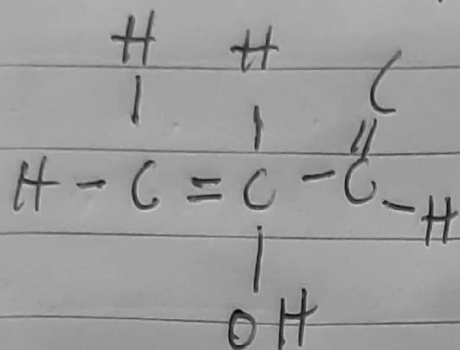 H H
C
H - C = C - C - H
OH